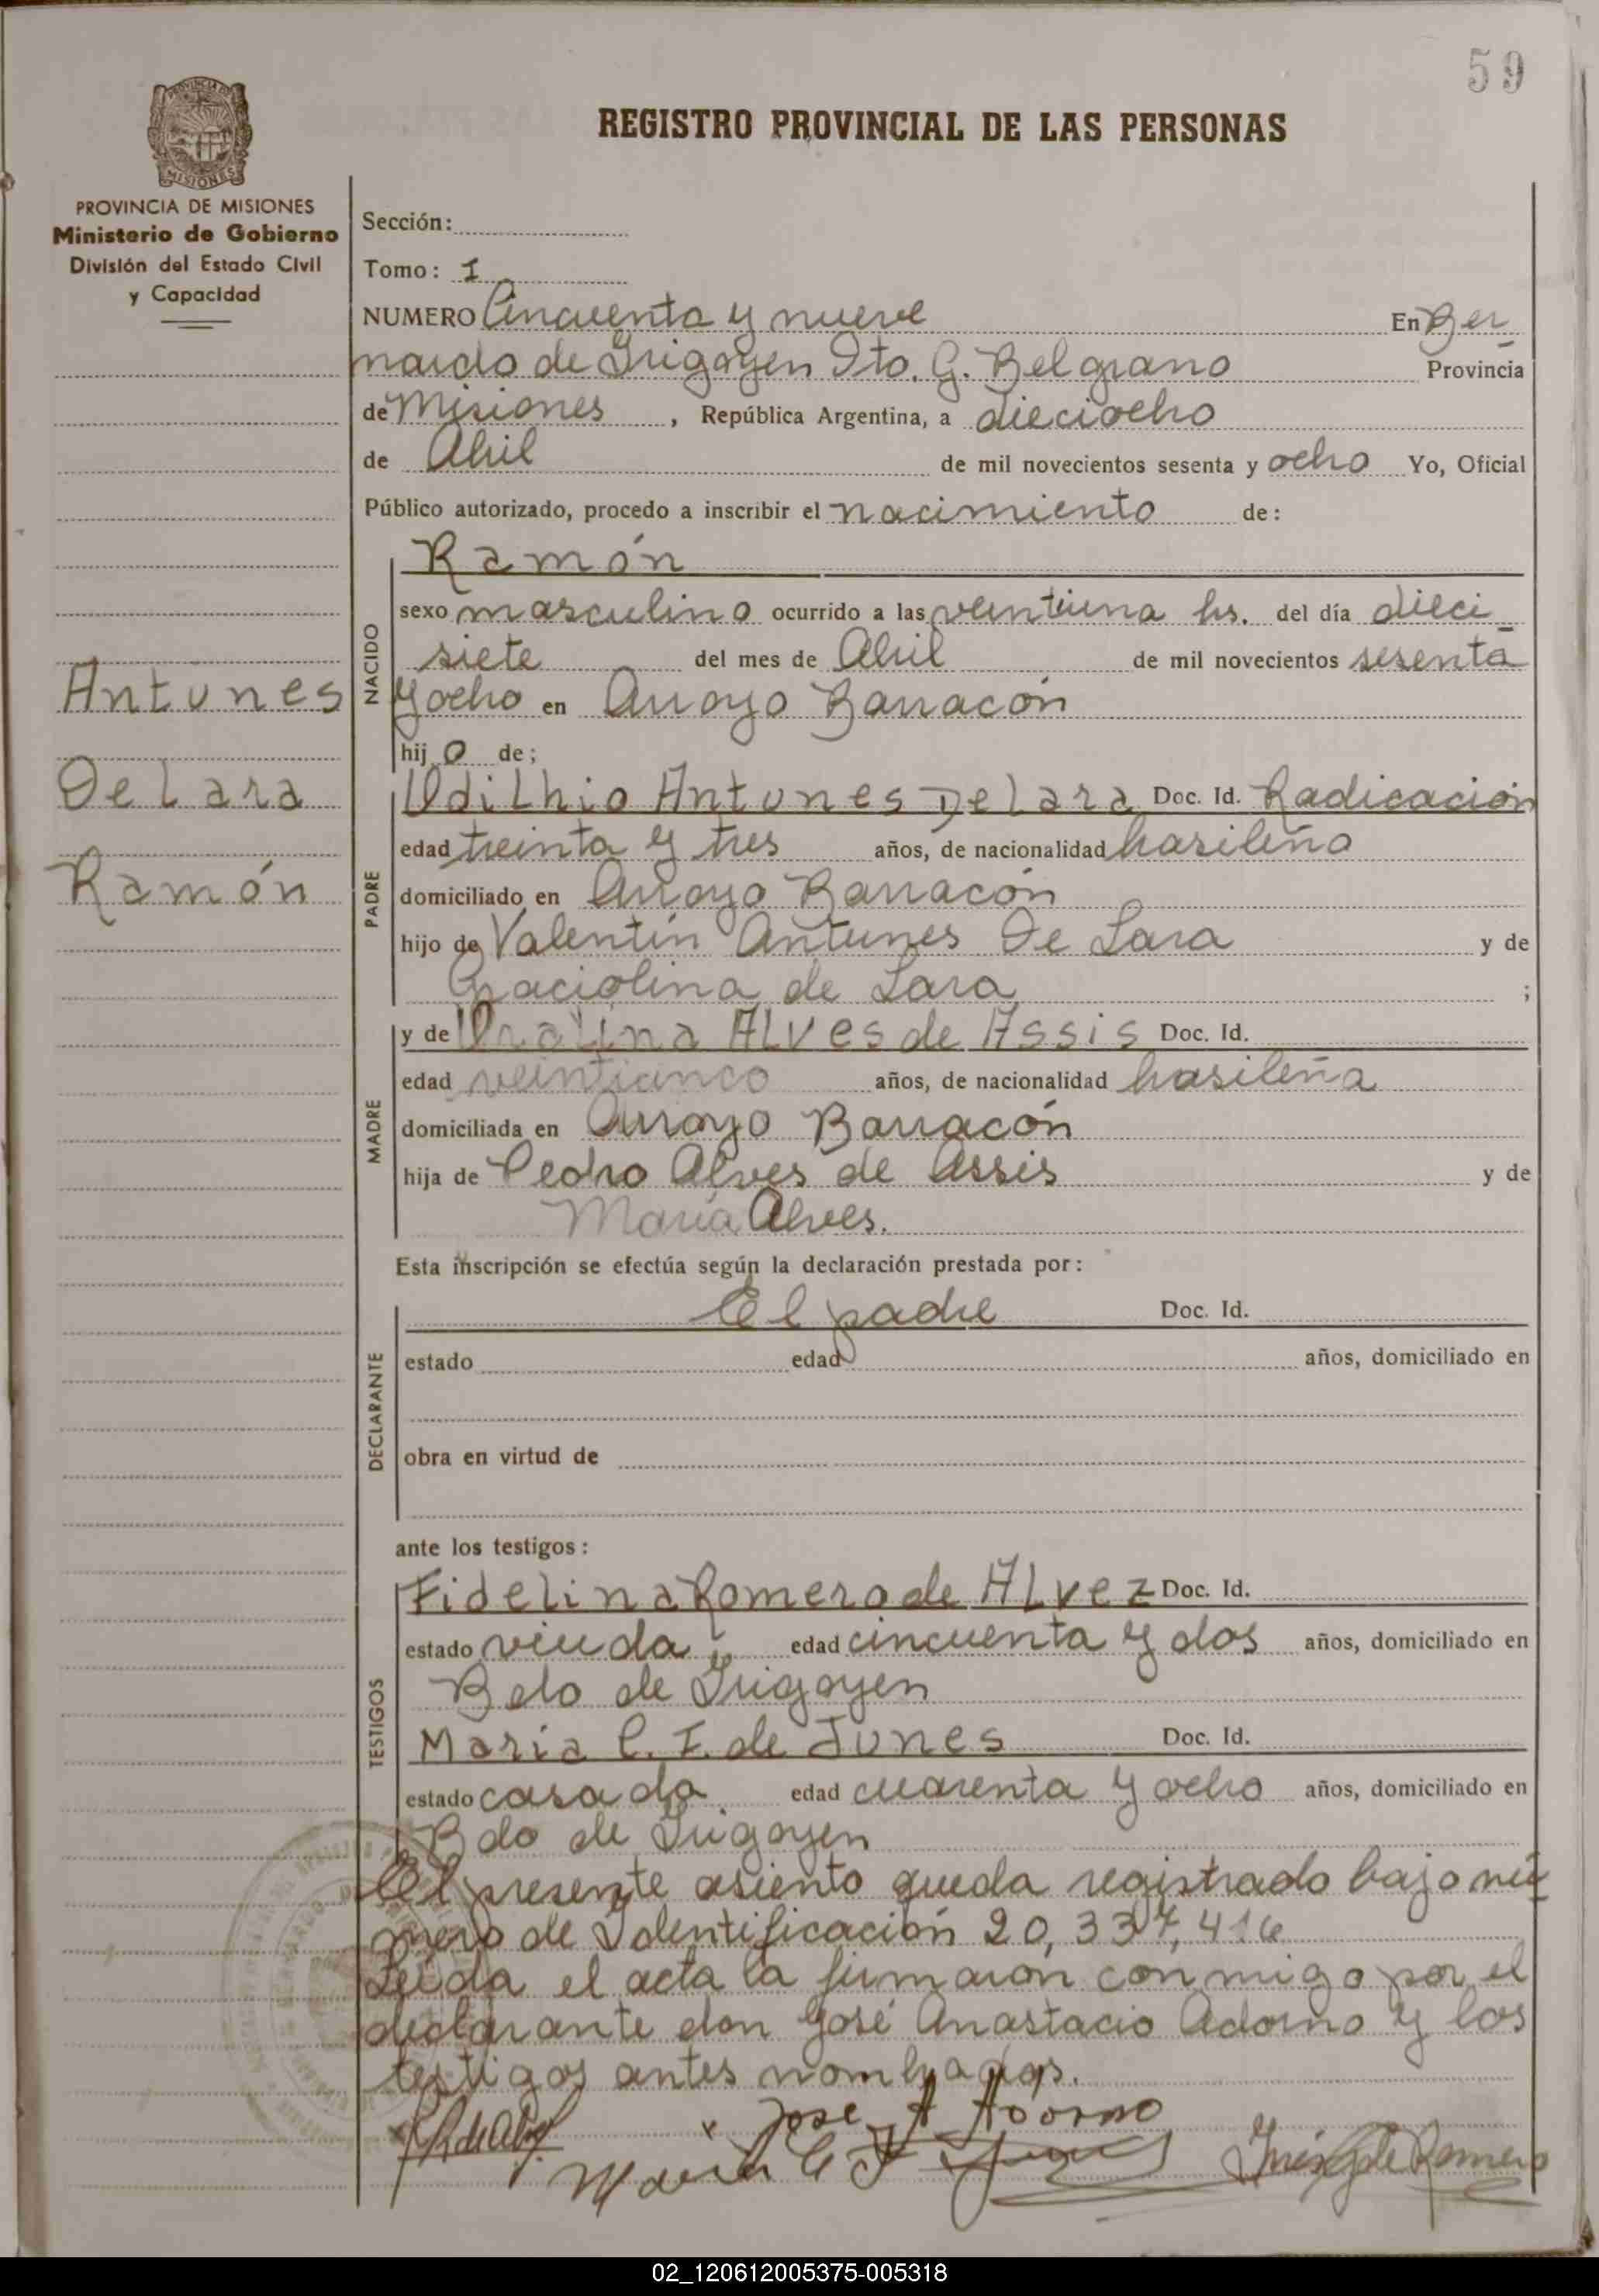 59
REGISTRO PROVINCIAL DE LAS PERSONAS
PROVINCIA DE MISIONES
Ministerio de Gobierno
División del Estado Civil
y Capacidad
Sección:
Tomo: 1
NUMERO Cincuenta y nueve En Ber
nardo de Irigoyen Dto. G. Belgrano Provincia
de Misiones, República Argentina, a dieciocho
de Abril de mil novecientos sesenta y ocho Yo, Oficial
Público autorizado, procedo a inscribir el nacimiento de:
Antunes
De Lara
Ramón
NACIDO
Ramón
sexo masculino ocurrido a las veintiuna hs. del día dieci
siete del mes de Abril de mil novecientos sesenta
y ocho en Arroyo Barracón
hijo de;
PADRE
Odilhio Antunes De Lara Doc. Id. Radicación
edad treinta y tres años, de nacionalidad brasileño
domiciliado en Arroyo Barracón
hijo de Valentín Antunes De Lara y de
Graciolina de Lara ;
MADRE
y de Oralina Alves de Assis Doc. Id.
edad veinticinco años, de nacionalidad brasileña
domiciliada en Arroyo Barracón
hija de Pedro Alves de Assis y de
María Alves.
Esta inscripción se efectúa según la declaración prestada por:
DECLARANTE
El padre Doc. Id.
estado edad años, domiciliado en
obra en virtud de
ante los testigos:
TESTIGOS
Fidelina Romero de Alvez Doc. Id.
estado viuda edad cincuenta y dos años, domiciliado en
Bdo de Irigoyen
María C. F. de Junes Doc. Id.
estado casada edad cuarenta y ocho años, domiciliado en
Bdo de Irigoyen
El presente asiento queda registrado bajo nú
mero de Identificación 20,337,416
Leida el acta la firmaron conmigo por el
declarante don José Anastacio Adorno y los
testigos antes nombrados.
José A Adorno
María C F
de Romero
02_120612005375-005318